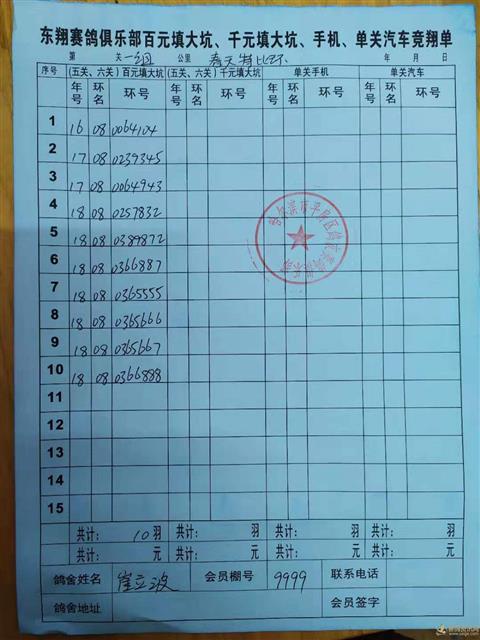 东翔赛鸽俱乐部百元填大坑、千元填大坑、手机、单关汽车竞翔单
第 关 一组 公里 春天特比环 年 月 日
序号 (五关、六关)百元填大坑 (五关、六关)千元填大坑 单关手机 单关汽车
年号 环名 环号 年号 环名 环号 年号 环名 环号 年号 环名 环号
1 16 08 0064104
2 17 08 0239345
3 17 08 0064943
4 18 08 0257832
5 18 08 0389872
6 18 08 0366887
7 18 08 0365555
8 18 08 0365666
9 18 08 0365667
10 18 08 0366888
11
12
13
14
15
共计: 10羽 共计: 羽 共计: 羽 共计: 羽
共计: 元 共计: 元 共计: 元 共计: 元
鸽舍姓名 崔立波 会员棚号 9999 联系电话
鸽舍地址 会员签字